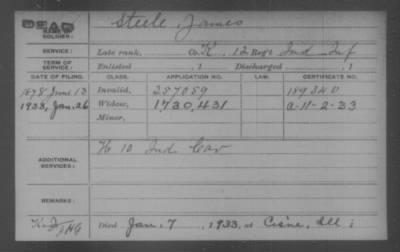 DEAD
SOLDIER: Steele, James
SERVICE: Late rank, Co. K, 12 Reg't Ind Inf
TERM OF SERVICE: Enlisted , 1 Discharged , 1
DATE OF FILING. CLASS. APPLICATION NO. LAW. CERTIFICATE NO.
1878 June 13 Invalid, 287089
1933, Jan. 26 Widow, 1730,431 A-11-2-33
Minor,
ADDITIONAL SERVICES: K 10 Ind Cav
REMARKS:
Died Jan. 7, 1933, at Cisne, Ill;